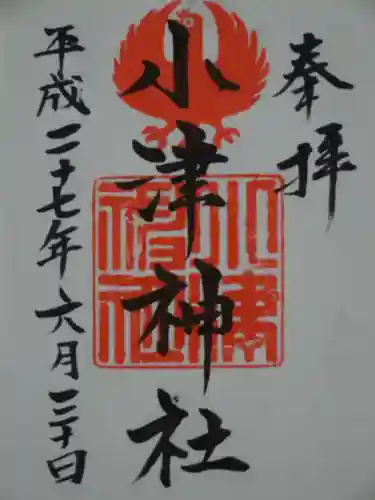 奉拝
小津神社
平成二十七年六月二十日